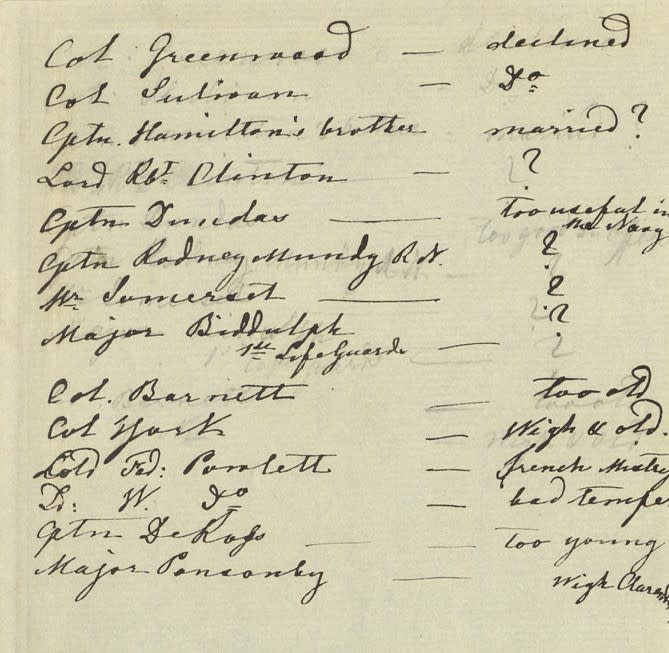 Col Greenwood — declined
Col Sulivan — Do
Cptn. Hamilton's brother married?
Lord Rbt. Clinton — ?
Cptn Dundas — too useful in
the Navy
Cptn Rodney Mundy R.N. ?
Mr Somerset — ?
Major Biddulph ?
1st Life Guards —
Col. Barnett — too old
Col York — Wigh & old.
Lord Fed: Powlett — french Mistre
Ld: W. Do — bad temper
Cptn DeRoſs — — too young
Major Ponsonby — Wigh